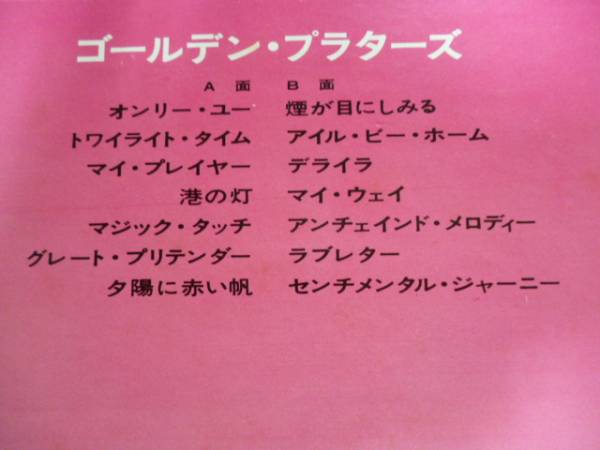 ゴールデン・プラターズ
A 面 B 面
オンリー・ユー 煙が目にしみる
トワイライト・タイム アイル・ビー・ホーム
マイ・プレイヤー デライラ
港の灯 マイ・ウェイ
マジック・タッチ アンチェインド・メロディー
グレート・プリテンダー ラブレター
夕陽に赤い帆 センチメンタル・ジャーニー